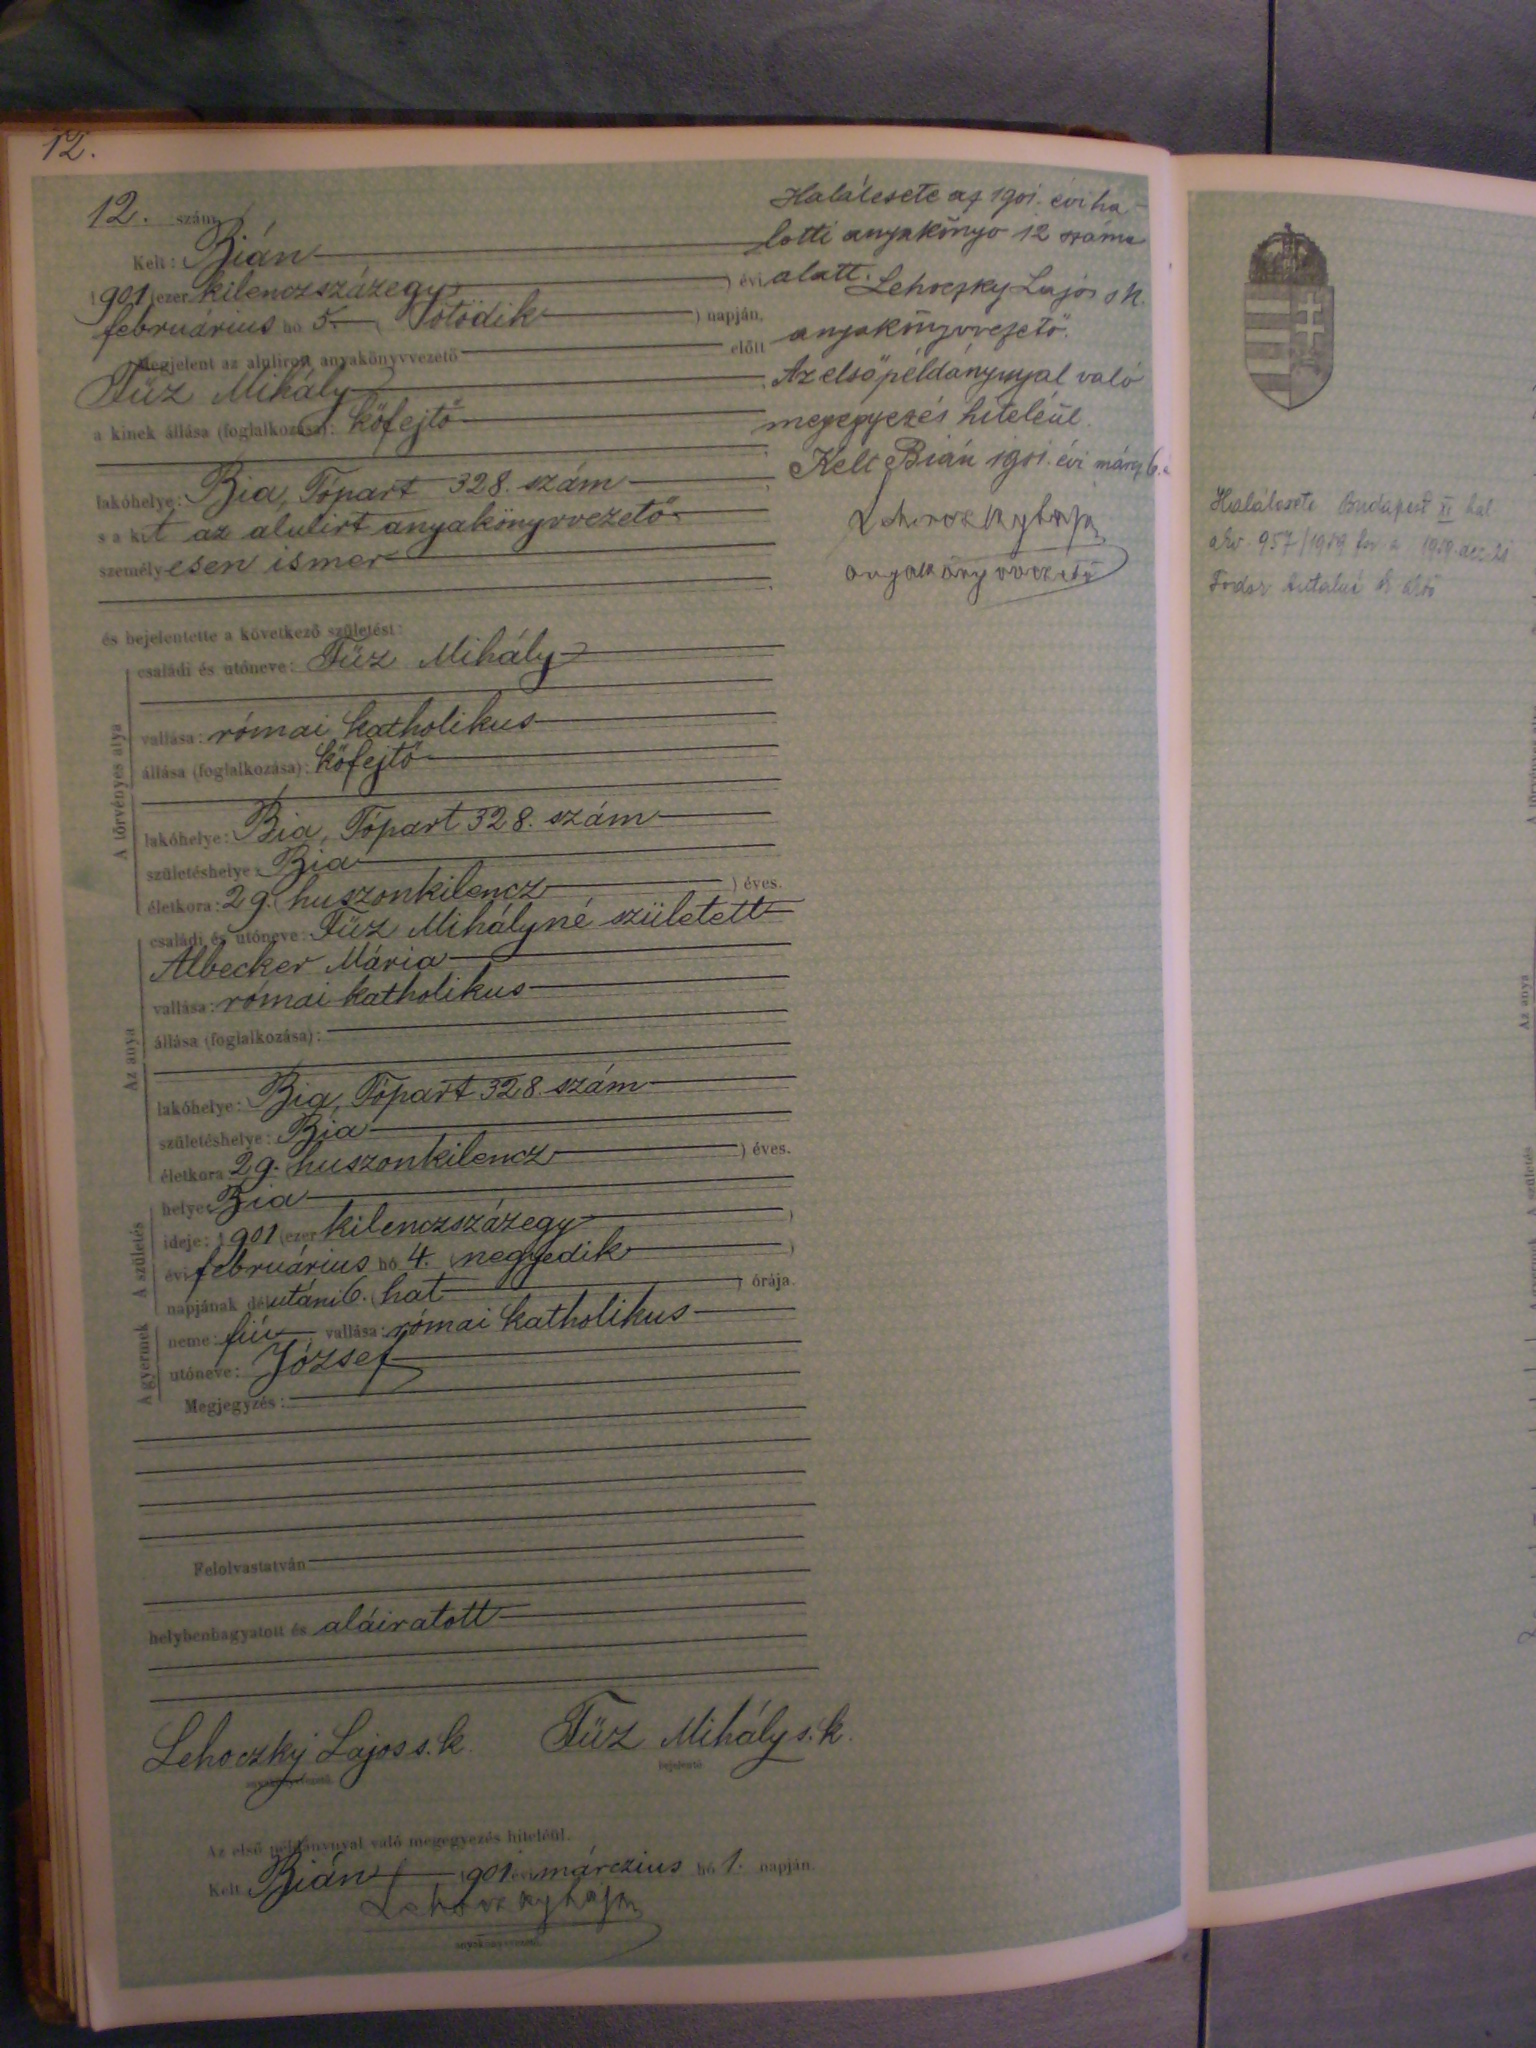 12.
12. szám
Kelt: Bián
1901 (ezer kilenczszázegy ) évi
februárius hó 5. ( ötödik ) napján.
Megjelent az alulirott anyakönyvvezető előtt
Füz Mihály
a kinek állása (foglalkozása): kőfejtő
lakóhelye: Bia, Tópart 328. szám
s a kit az alulirt anyakönyvvezető
személyesen ismer
és bejelentette a következő születést:
A törvényes atya
családi és utóneve: Füz Mihály
vallása: római katholikus
állása (foglalkozása): kőfejtő
lakóhelye: Bia, Tópart 328. szám
születéshelye: Bia
életkora: 29. (huszonkilencz ) éves.
Az anya
családi és utóneve: Füz Mihályné született
Albecker Mária
vallása: római katholikus
állása (foglalkozása):
lakóhelye: Bia, Tópart 328. szám
születéshelye: Bia
életkora 29. (huszonkilencz ) éves.
A születés
helye: Bia
ideje: 1901 (ezer kilenczszázegy )
évi februárius hó 4. (negyedik )
napjának délutáni 6. (hat ) órája.
A gyermek
neme: fiú vallása: római katholikus
utóneve: József
Megjegyzés:
Felolvastatván
helybenhagyatott és aláiratott
Lehoczky Lajos s.k. Füz Mihály s.k.
anyakönyvvezető. bejelentő
Az első példánynyal való megegyezés hiteléül.
Kelt Bián 1901 évi márczius hó 1. napján.
Lehoczky Lajos
anyakönyvvezető.
Halálesete az 1901. évi ha-
lotti anyakönyv 12 száma
alatt. Lehoczky Lajos sk.
anyakönyvvezető.
Az első példánynyal való
megegyezés hiteléül.
Kelt Bián 1901. évi márcz 6.
Lehoczky Lajos
anyakönyvvezető
Halálesete Budapest XI hal
akv. 957/1959 1959 dec
Fodor
Az anya
A születés